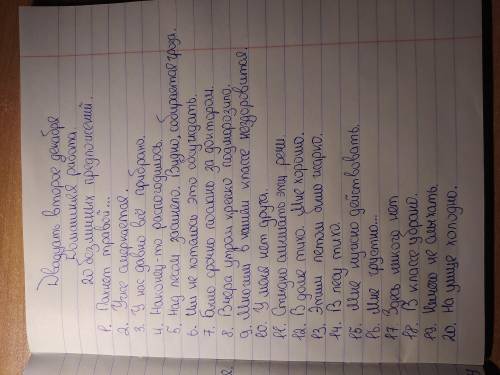 Двадцать второе декабря
Домашняя работа
20 безличных предложений.
1. Пахнет травой...
2. Уже смеркается.
3. У нас давно всё прибрано.
4. Наконец-то распогодилось.
5. Над лесом затянело. Видно, собирается гроза.
6. Им не хотелось это обсуждать.
7. Было срочно послано за доктором.
8. Вчера утром крепко подморозило.
9. Многим в нашем классе нездоровится.
10. У меня нет друга.
11. Стыдно слышать эти речи.
12. В доме тихо. Мне хорошо.
13. Этим летом было жарко.
14. В лесу тихо.
15. Мне нужно действовать.
16. Мне грустно...
17. Здесь никого нет.
18. В классе убрано.
19. Ничего не слыхать.
20. На улице холодно.